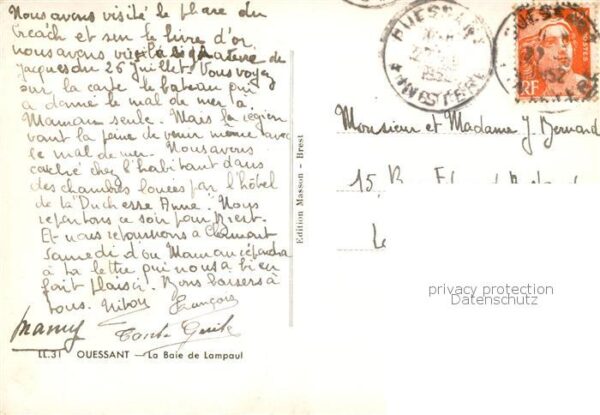 Nous avons visité le phare du
Créach et sur le livre d'or,
nous avons vu la signature de
Jacques du 26 juillet. Vous voyez
sur la carte le bateau qui
a donné le mal de mer à
Maman seule. Mais la région
vaut la peine de venir même avec
le mal de mer. Nous avons
couché chez l'habitant dans
des chambres louées par l'hôtel
de la Duchesse Anne. Nous
repartons ce soir pour Brest.
Et nous retournons à Clermont
Samedi d'où Maman répondra
à ta lettre qui nous a bien
fait plaisir. Bons baisers à
tous. François
Mamy Tante
LL.31 OUESSANT - La Baie de Lampaul
Edition Masson - Brest
OUESSANT
FINISTERE
OUESSANT
52
POSTES
RF
Monsieur et Madame J. Bernard
15, R
Le
privacy protection
Datenschutz